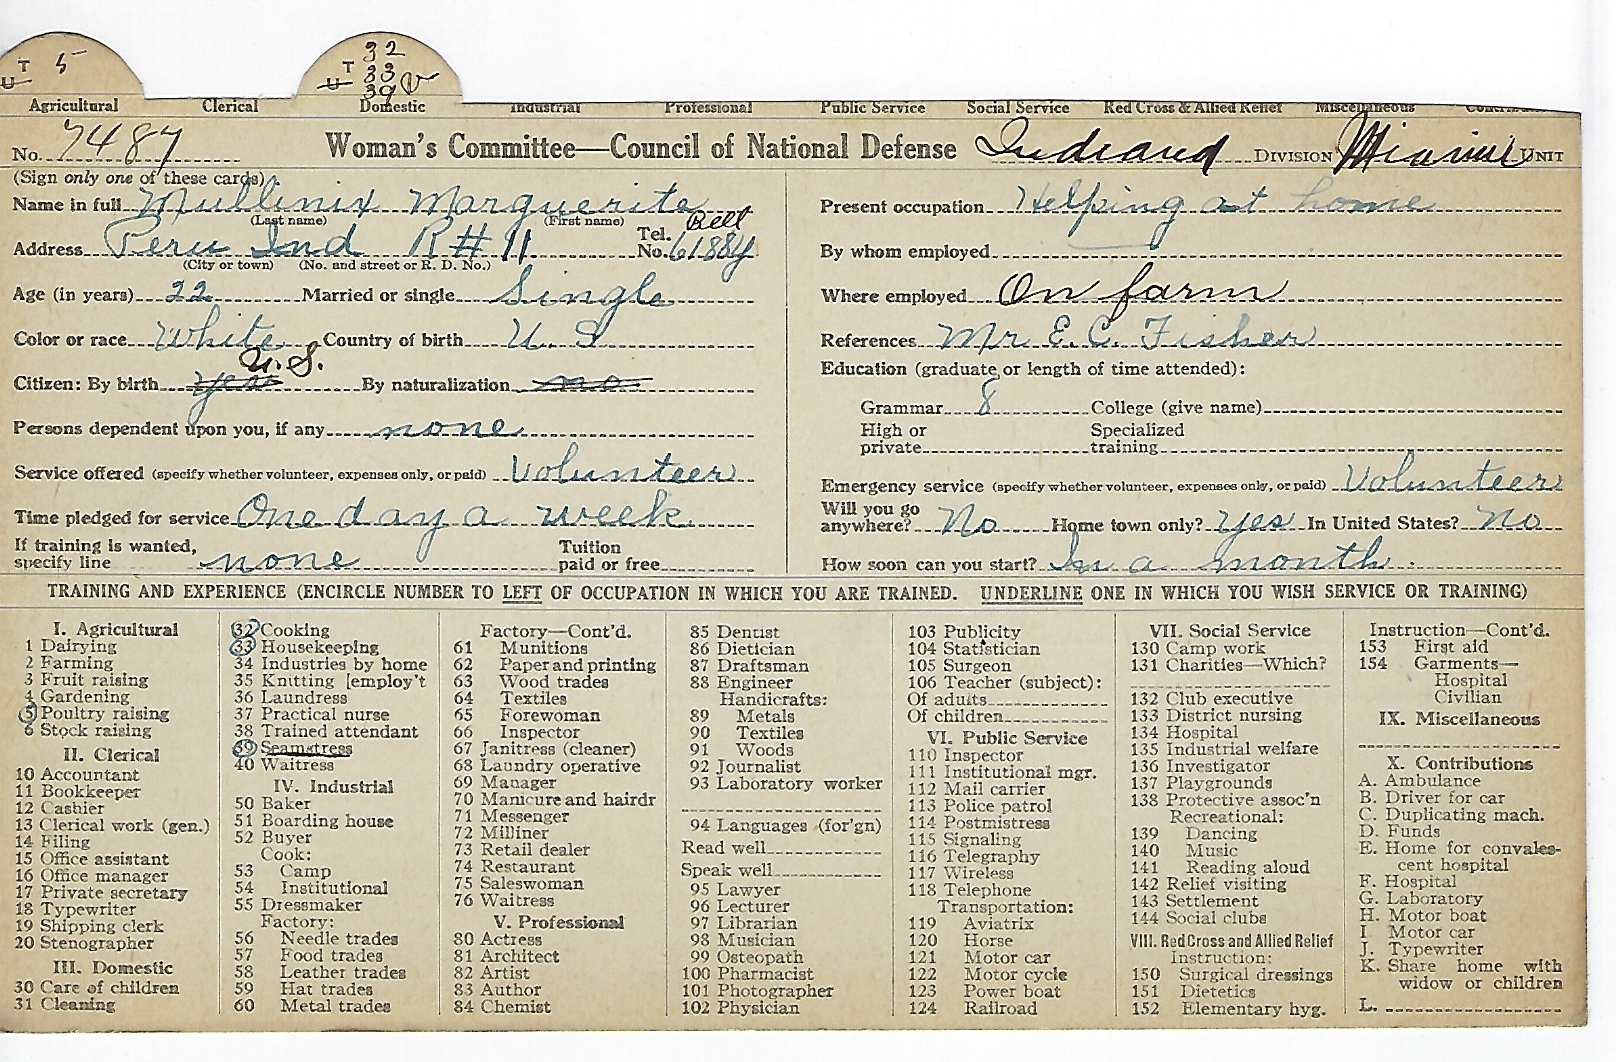 T 5
U
T 32
U 33
39 V
Agricultural Clerical Domestic Industrial Professional Public Service Social Service Red Cross & Allied Relief Miscellaneous
No. 7487 Woman's Committee—Council of National Defense Indiana DIVISION Miami UNIT
(Sign only one of these cards)
Name in full Mullinix Marguerite
(Last name) (First name)
Address Peru Ind R#11 Tel. No. Bell 6188y
(City or town) (No. and street or R. D. No.)
Age (in years) 22 Married or single Single
Color or race White Country of birth U. S
U.S.
Citizen: By birth yes By naturalization no
Persons dependent upon you, if any none
Service offered (specify whether volunteer, expenses only, or paid) Volunteer
Time pledged for service One day a week
If training is wanted, specify line none Tuition paid or free
Present occupation Helping at home
By whom employed
Where employed On farm
References Mr E. C. Fisher
Education (graduate or length of time attended):
Grammar 8 College (give name)
High or private Specialized training
Emergency service (specify whether volunteer, expenses only, or paid) Volunteer
Will you go anywhere? No Home town only? yes In United States? no
How soon can you start? In a month.
TRAINING AND EXPERIENCE (ENCIRCLE NUMBER TO LEFT OF OCCUPATION IN WHICH YOU ARE TRAINED. UNDERLINE ONE IN WHICH YOU WISH SERVICE OR TRAINING)
I. Agricultural
1 Dairying
2 Farming
3 Fruit raising
4 Gardening
5 Poultry raising
6 Stock raising
II. Clerical
10 Accountant
11 Bookkeeper
12 Cashier
13 Clerical work (gen.)
14 Filing
15 Office assistant
16 Office manager
17 Private secretary
18 Typewriter
19 Shipping clerk
20 Stenographer
III. Domestic
30 Care of children
31 Cleaning
32 Cooking
33 Housekeeping
34 Industries by home
35 Knitting [employ't
36 Laundress
37 Practical nurse
38 Trained attendant
39 Seamstress
40 Waitress
IV. Industrial
50 Baker
51 Boarding house
52 Buyer
Cook:
53 Camp
54 Institutional
55 Dressmaker
Factory:
56 Needle trades
57 Food trades
58 Leather trades
59 Hat trades
60 Metal trades
Factory—Cont'd.
61 Munitions
62 Paper and printing
63 Wood trades
64 Textiles
65 Forewoman
66 Inspector
67 Janitress (cleaner)
68 Laundry operative
69 Manager
70 Manicure and hairdr
71 Messenger
72 Milliner
73 Retail dealer
74 Restaurant
75 Saleswoman
76 Waitress
V. Professional
80 Actress
81 Architect
82 Artist
83 Author
84 Chemist
85 Dentist
86 Dietician
87 Draftsman
88 Engineer
Handicrafts:
89 Metals
90 Textiles
91 Woods
92 Journalist
93 Laboratory worker
94 Languages (for'gn)
Read well
Speak well
95 Lawyer
96 Lecturer
97 Librarian
98 Musician
99 Osteopath
100 Pharmacist
101 Photographer
102 Physician
103 Publicity
104 Statistician
105 Surgeon
106 Teacher (subject):
Of adults
Of children
VI. Public Service
110 Inspector
111 Institutional mgr.
112 Mail carrier
113 Police patrol
114 Postmistress
115 Signaling
116 Telegraphy
117 Wireless
118 Telephone
Transportation:
119 Aviatrix
120 Horse
121 Motor car
122 Motor cycle
123 Power boat
124 Railroad
VII. Social Service
130 Camp work
131 Charities—Which?
132 Club executive
133 District nursing
134 Hospital
135 Industrial welfare
136 Investigator
137 Playgrounds
138 Protective assoc'n
Recreational:
139 Dancing
140 Music
141 Reading aloud
142 Relief visiting
143 Settlement
144 Social clubs
VIII. Red Cross and Allied Relief
Instruction:
150 Surgical dressings
151 Dietetics
152 Elementary hyg.
Instruction—Cont'd.
153 First aid
154 Garments—
Hospital
Civilian
IX. Miscellaneous
X. Contributions
A. Ambulance
B. Driver for car
C. Duplicating mach.
D. Funds
E. Home for convales-
cent hospital
F. Hospital
G. Laboratory
H. Motor boat
I Motor car
J. Typewriter
K. Share home with
widow or children
L.